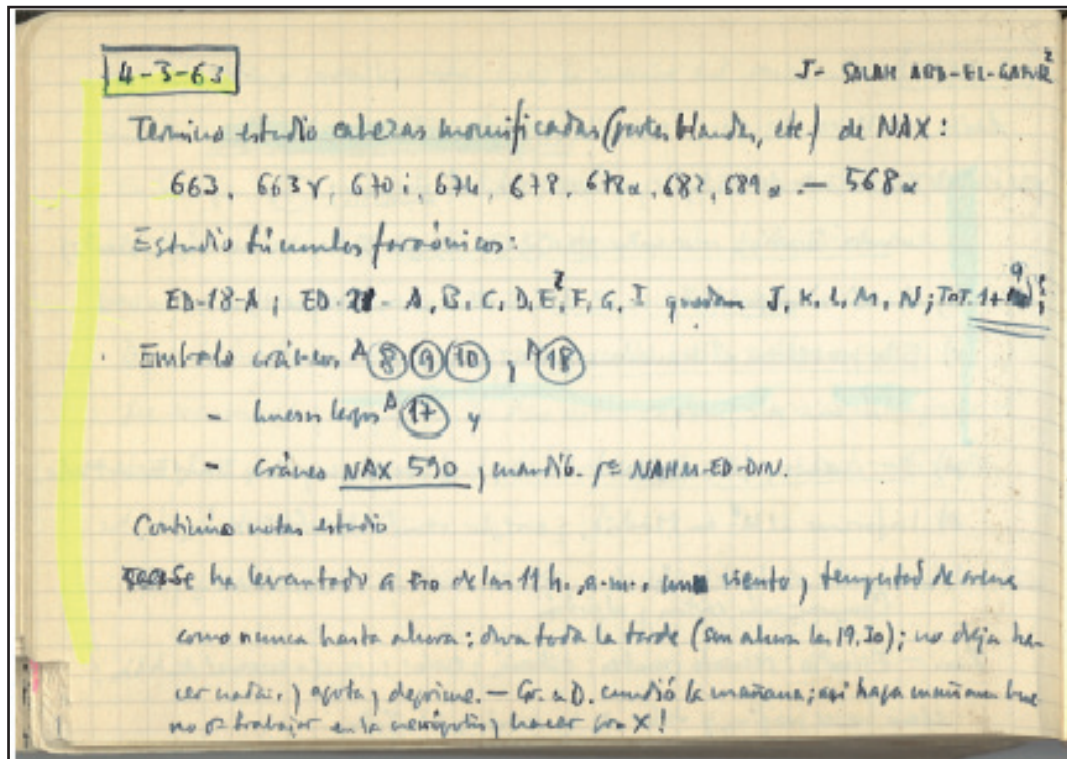 4-3-63
J- SALAH ABD-EL-GAFUR
Termino estudio cabezas momificadas (partes blandas, etc.) de NAX:
663, 663γ, 670i, 674, 678, 678α, 682, 689α — 568α
Estudio túmulos faraónicos:
ED-18-A; ED- - A, B, C, D, E, F, G, I quedan J, K, L, M, N; TOT. 1+9
Embalo cráneos A 8 9 10, A 18
- huesos largos A 17 y
- cráneo NAX 590, mandíb. NAHM-ED-DIN.
Continúo notas estudio
Se ha levantado a eso de las 11 h. a.m. un viento y tempestad de arena
como nunca hasta ahora: dura toda la tarde (son ahora las 19,30); no deja ha-
cer nada, y agota y deprime. — G. a D. cundió la mañana; así haga mañana bue-
no o- trabajar en la necrópolis y hacer con X!